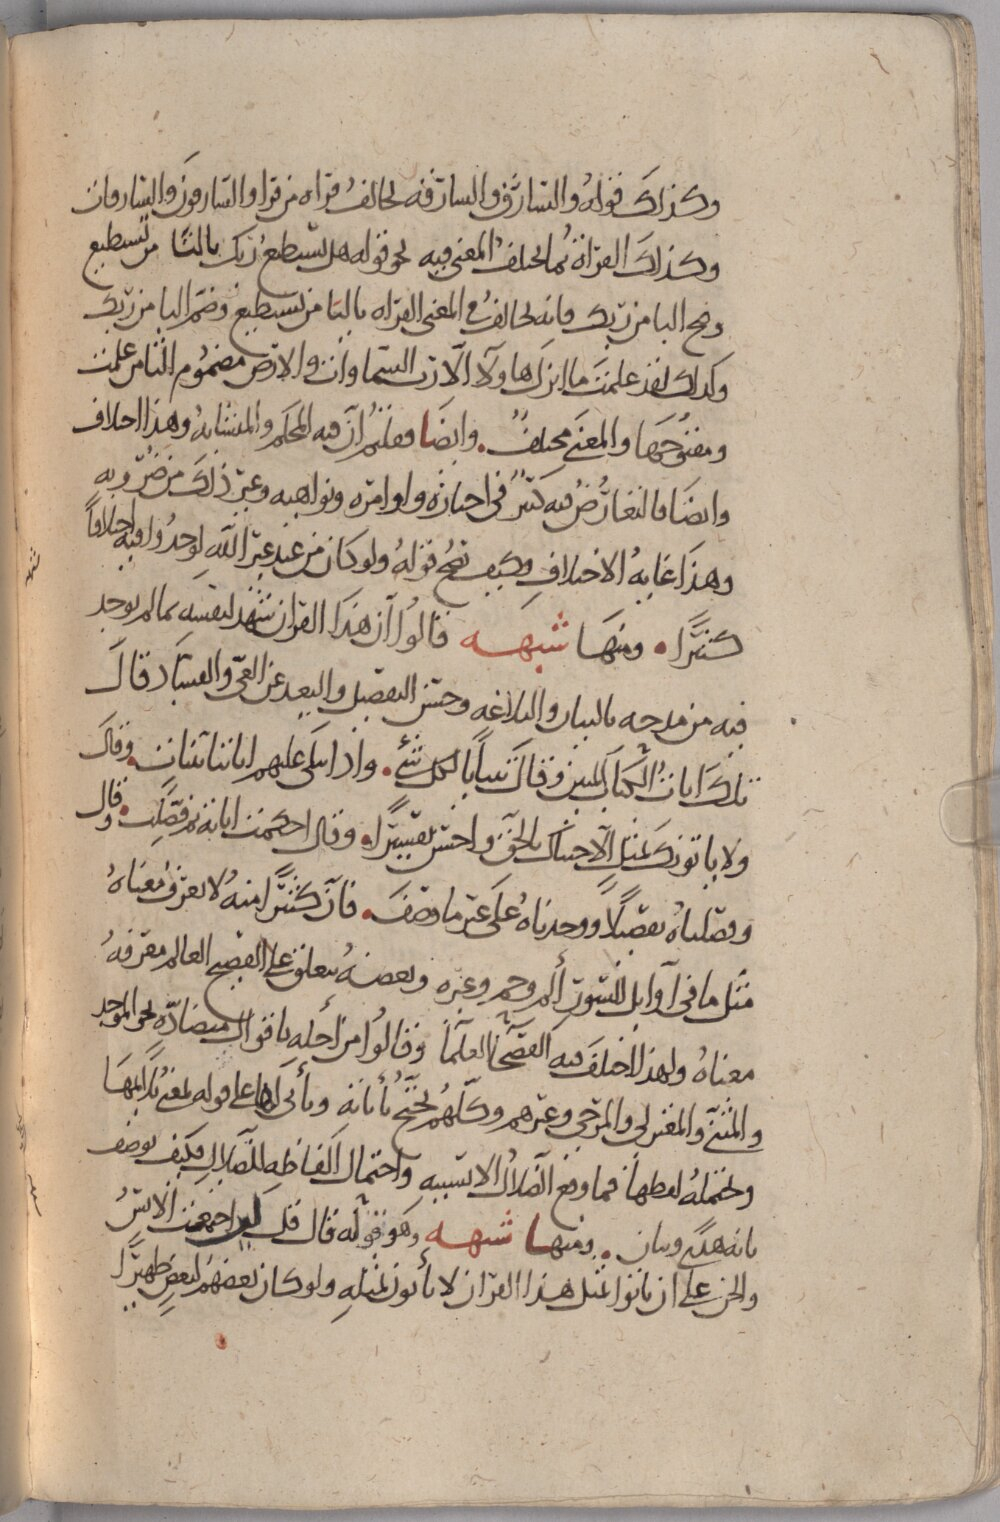 وكذلك قوله والسارق والسارقة يخالف قراه من قرا والسارقون والسارقات
وكذلك القراة بما يختلف المعنى فيه نحو قوله هل تستطيع ربك بالتا من تستطيع
وفتح البا من ربك فانه يخالف في المعنى القراه باليا من يستطيع وضم البا من ربك
وكذلك لقد علمت ما انزل هاولا الا رب السماوات والارض مضموم التا من علمت
ومفتوحها والمعنى مختلف. وايضا فقلتم ان فيه المحكم والمتشابه وهذا اختلاف
وايضا فالتعارض فيه كثير في اخباره واوامره ونواهيه وغير ذلك من ضروبه
وهذا غايه الاختلاف وكيف يصح قوله ولو كان من عند غير الله لوجدوا فيه اختلافا
كثيرا. ومنها شبهه قالوا ان هذا القران شهد لنفسه بما لم يوجد
فيه من مدحه بالبيان والبلاغه وحسن التفصيل والبعد عن العي والفساد قال
تلك ايات الكتاب المبين وقال تبيانا لكل شي. واذا تتلى عليهم اياتنا بينات. وقال
ولا ياتونك بمثل الا جيناك بالحق واحسن تفسيرا. وقال احكمت اياته ثم فصلت. وقال
وفصلناه تفصيلا ووجدناه على غير ما وصف. فان كثيرا منه لا يعرف معناه
مثل ما في اوايل السور الم وحم وغيره وبعضه يتعلق على الفصيح العالم معرفه
معناه ولهذا اختلف فيه الفصحا العلما وقالوا من اجله باقوال متضاده نحو الموحد
والمثني والمعتزلي والمرجي وغيرهم وكلهم يحتج باياته وياتي لها على قوله بمعنى يلايمها
ويحتمله لفظها فما وقع الضلال الا بسببه واحتمال الفاظه للضلال فكيف يوصف
بانه هدى وبيان. ومنها شبهه وهو قوله قال قل لين اجتمعت الانس
والجن على ان ياتوا بمثل هذا القران لا ياتون بمثله ولو كان بعضهم لبعض ظهيرا